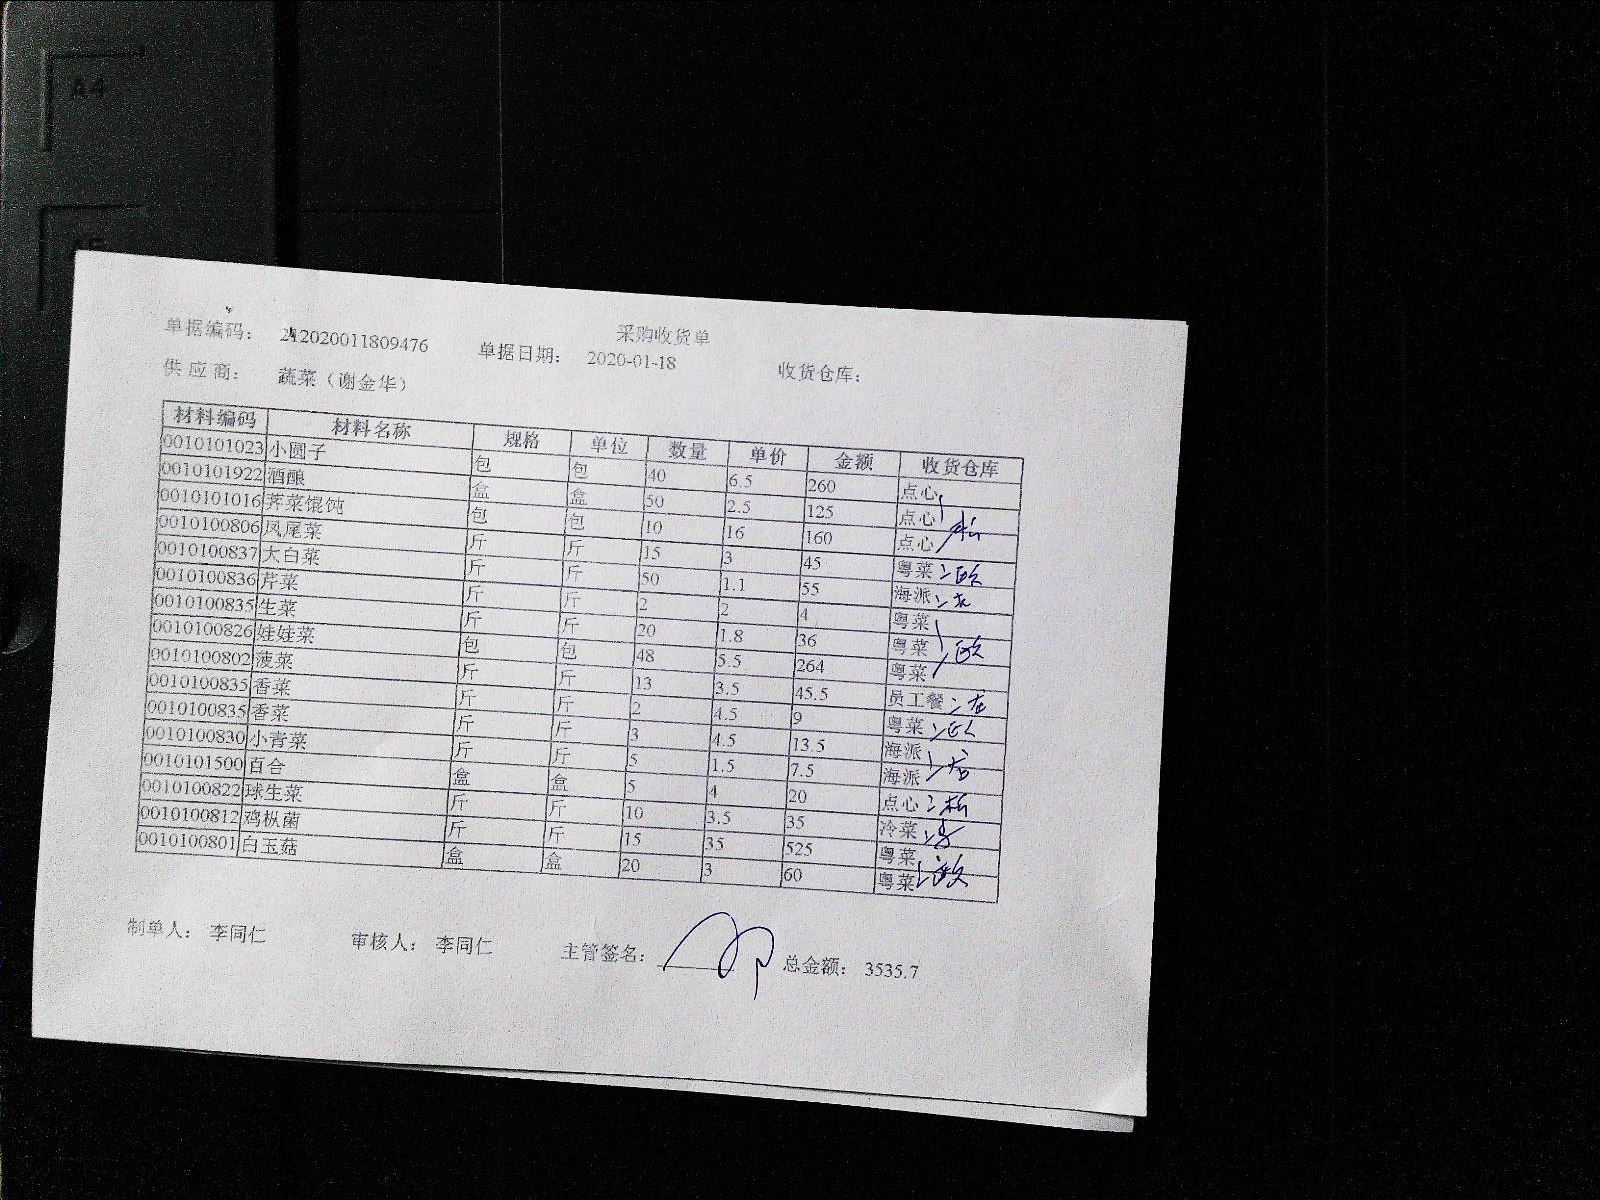 A4
采购收货单
单据编码： 242020011809476 单据日期： 2020-01-18 收货仓库：
供应商： 蔬菜（谢金华）
材料编码 材料名称 规格 单位 数量 单价 金额 收货仓库
0010101023 小圆子 包 包 40 6.5 260 点心
0010101922 酒酿 盒 盒 50 2.5 125 点心
0010101016 荠菜馄饨 包 包 10 16 160 点心
0010100806 凤尾菜 斤 斤 15 3 45 粤菜
0010100837 大白菜 斤 斤 50 1.1 55 海派
0010100836 芹菜 斤 斤 2 2 4 粤菜
0010100835 生菜 斤 斤 20 1.8 36 粤菜
0010100826 娃娃菜 包 包 48 5.5 264 粤菜
0010100802 菠菜 斤 斤 13 3.5 45.5 员工餐
0010100835 香菜 斤 斤 2 4.5 9 粤菜
0010100835 香菜 斤 斤 3 4.5 13.5 海派
0010100830 小青菜 斤 斤 5 1.5 7.5 海派
0010101500 百合 盒 盒 5 4 20 点心
0010100822 球生菜 斤 斤 10 3.5 35 冷菜
0010100812 鸡枞菌 斤 斤 15 35 525 粤菜
0010100801 白玉菇 盒 盒 20 3 60 粤菜
制单人： 李同仁 审核人： 李同仁 主管签名： 总金额： 3535.7